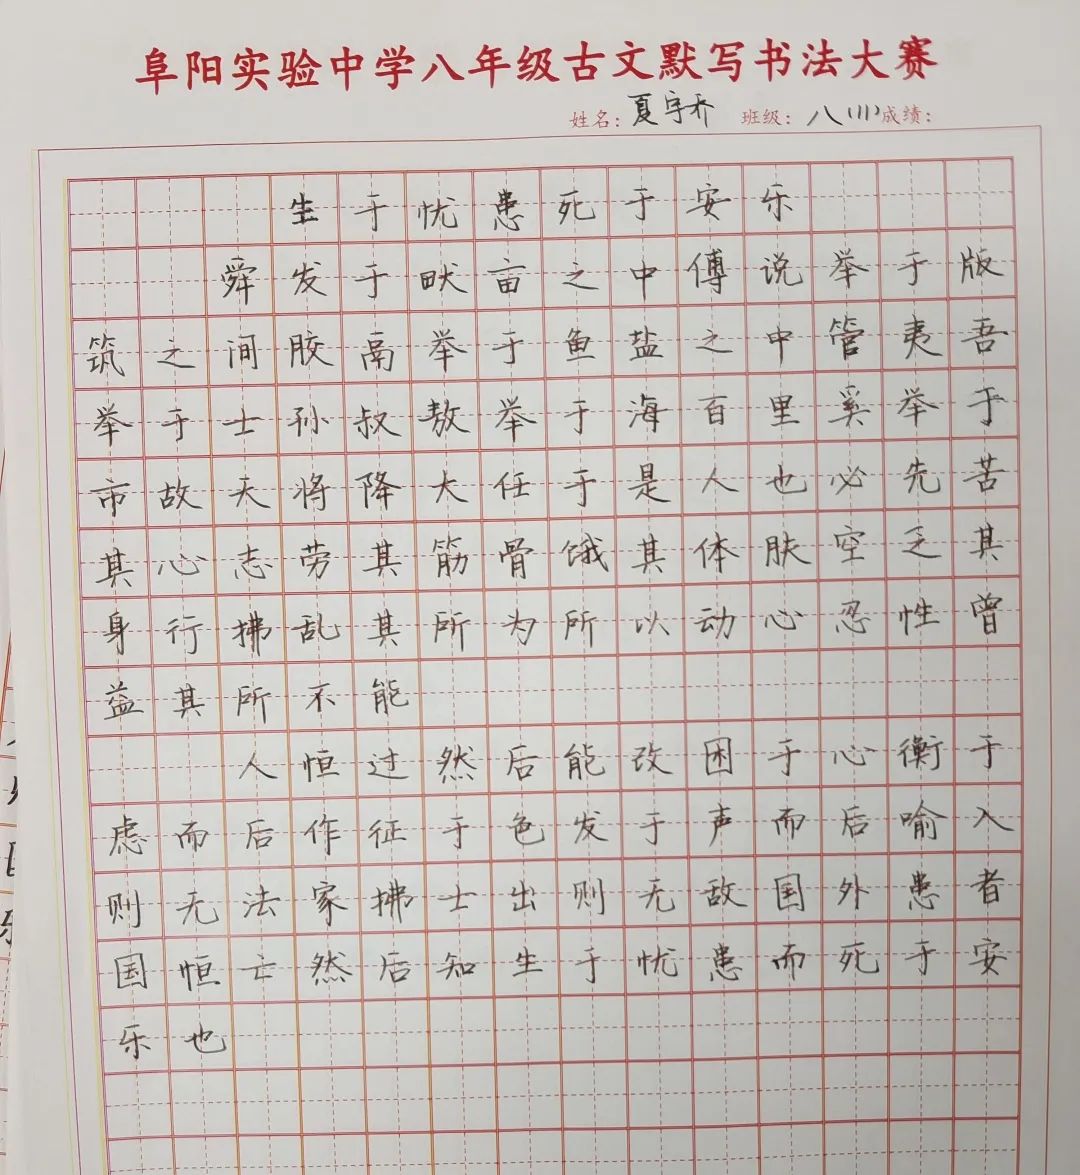 阜阳实验中学八年级古文默写书法大赛
姓名：夏宇乔 班级：八（11）成绩：
生于忧患死于安乐
舜发于畎亩之中傅说举于版
筑之间胶鬲举于鱼盐之中管夷吾
举于士孙叔敖举于海百里奚举于
市故天将降大任于是人也必先苦
其心志劳其筋骨饿其体肤空乏其
身行拂乱其所为所以动心忍性曾
益其所不能
人恒过然后能改困于心衡于
虑而后作征于色发于声而后喻入
则无法家拂士出则无敌国外患者
国恒亡然后知生于忧患而死于安
乐也